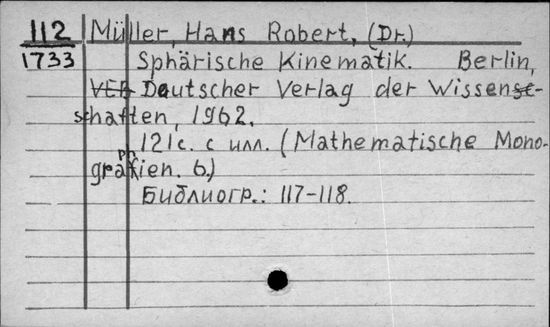 112 Müller, Hans Robert, (Dr.)
1733 Sphärische Kinematik. Berlin,
VEB Deutscher Verlag der Wissen-
schaften, 1962.
121с. с илл. (Mathematische Mono-
graphien. 6.)
Библиогр.: 117-118.